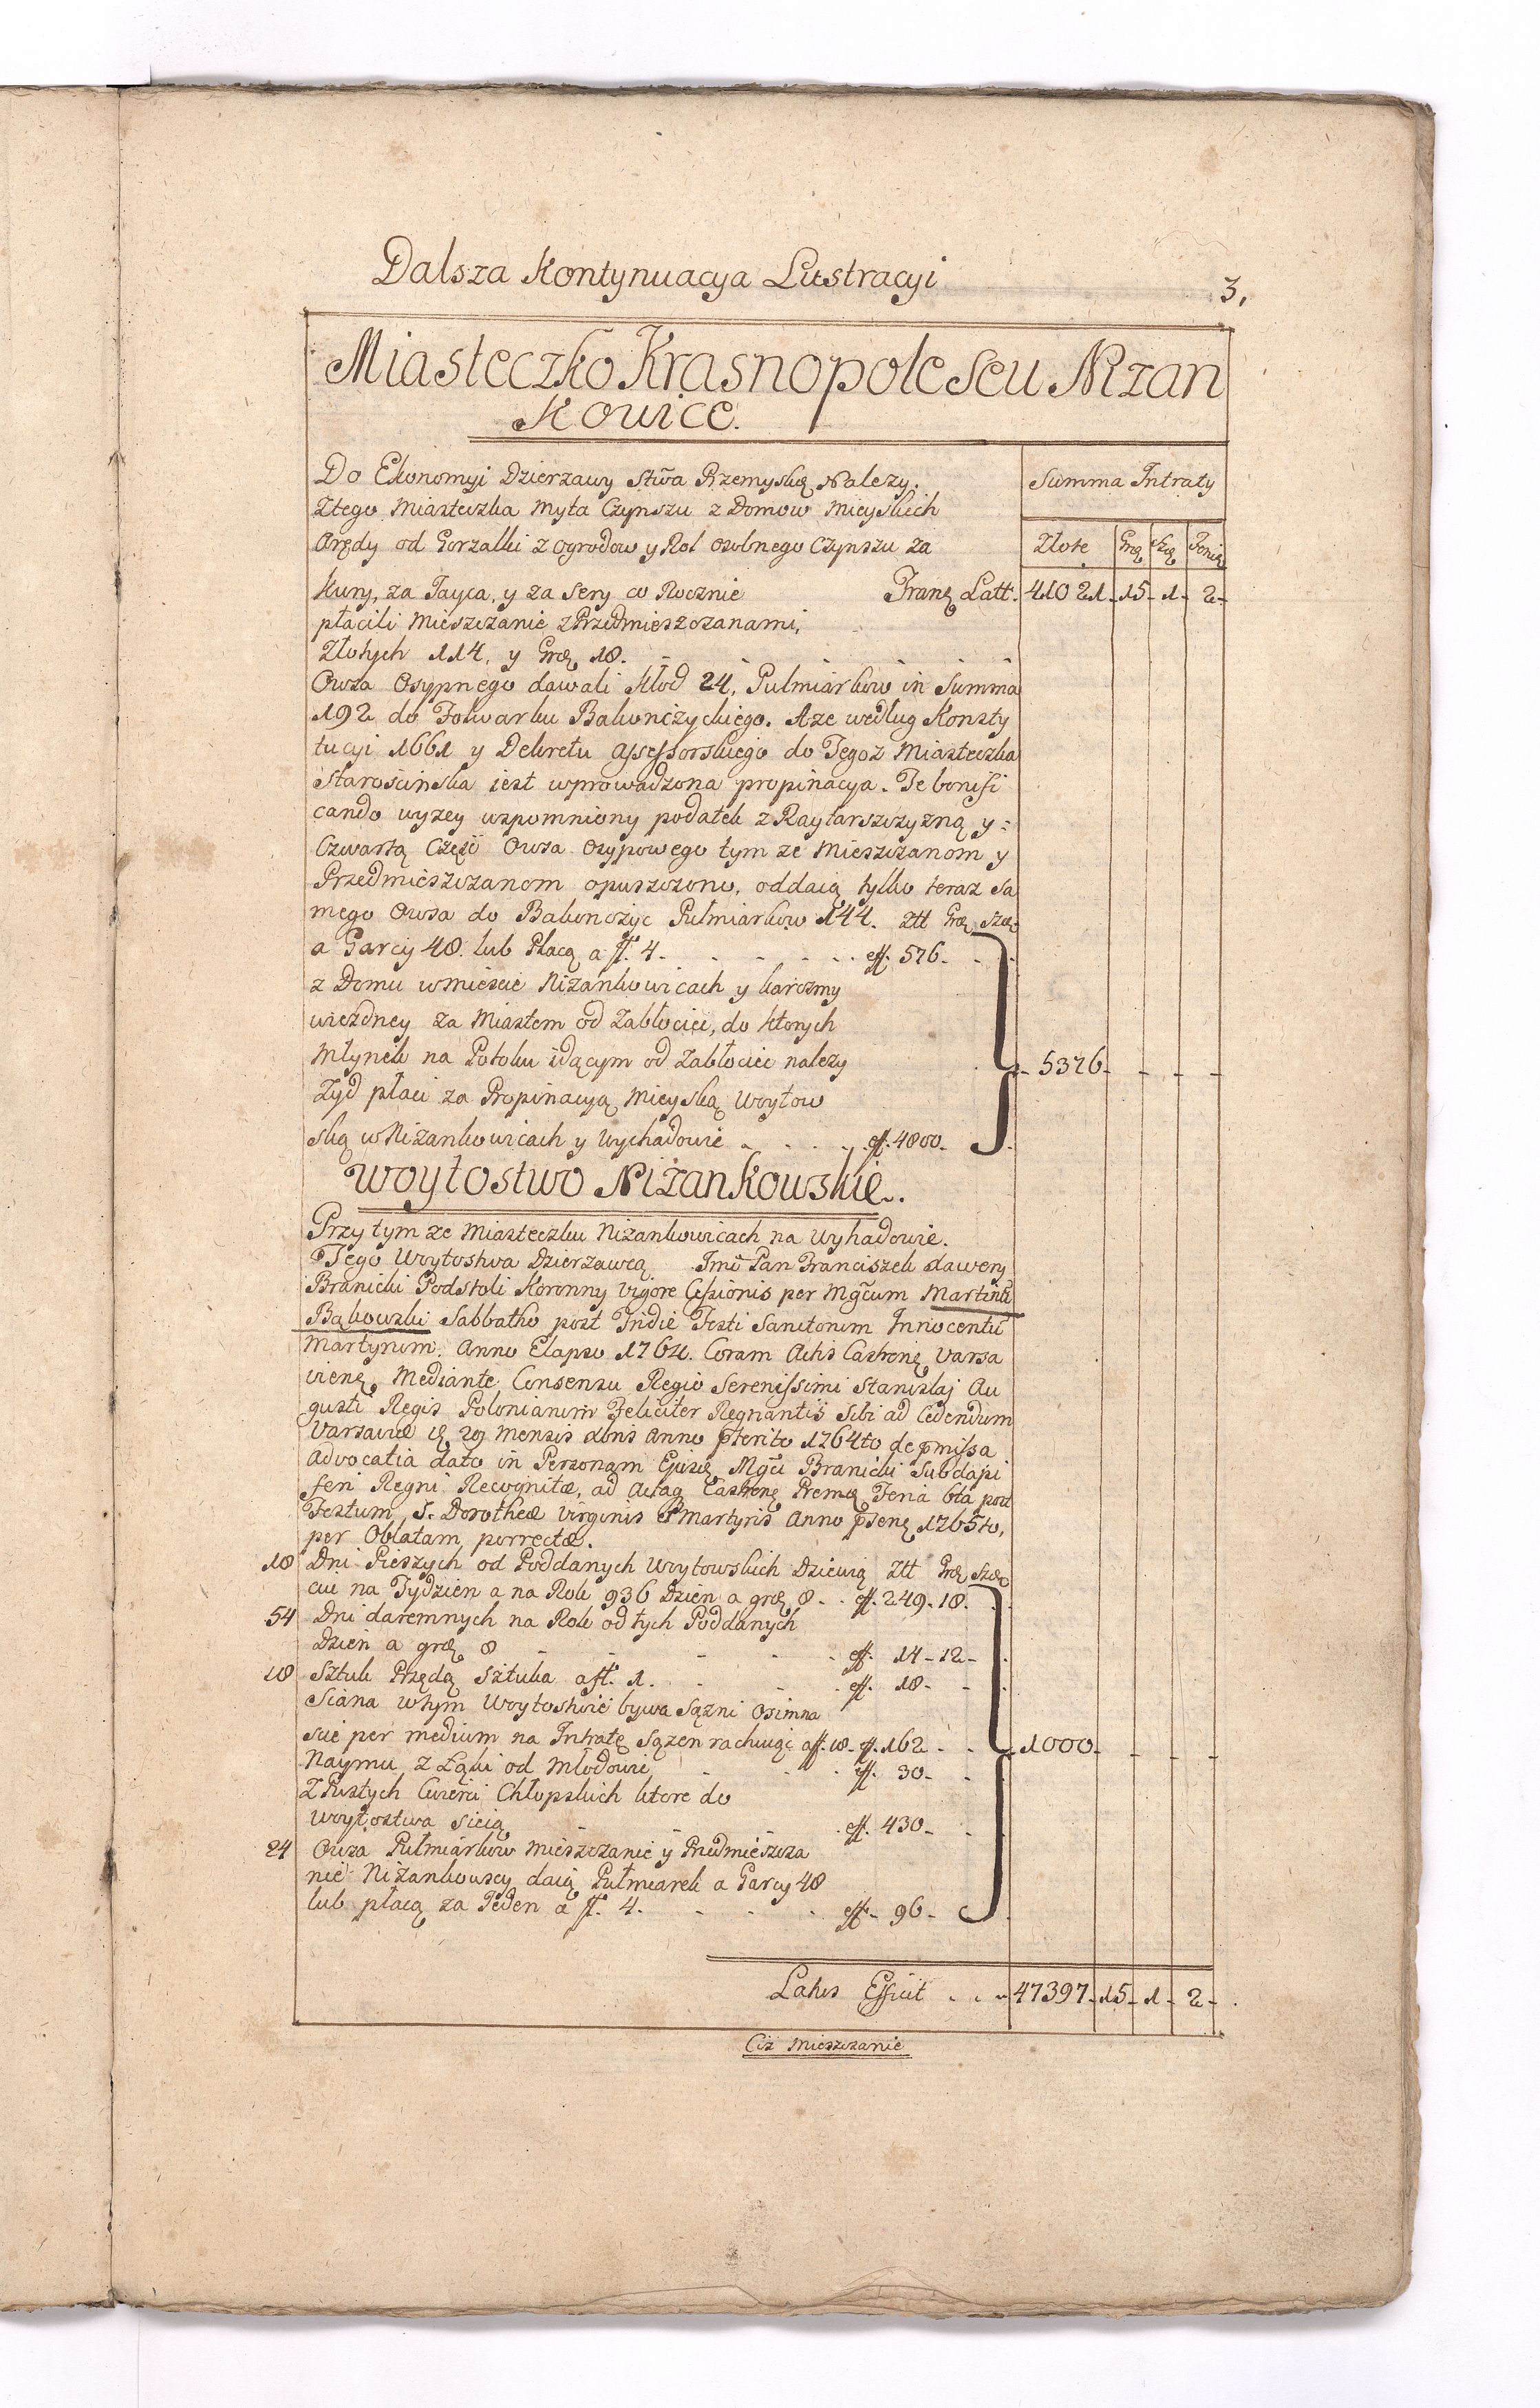 Dalsza Kontynuacya Lustracyi
3,
Miasteczko Krasnopole seu Nizan
kowice.
Do Ekonomyi Dzierzawy Stwa Przemyskę Nalezy.
Summa Intraty
Ztego Miasteczka Myta Czynszu z Domow Mieyskich
Arędy od Gorzałki z ogrodow y Rol osobnego Czynszu za
Złote Groę Szoę Fenię
Kury, za Jayca, y za Sery co Rocznie
Tranę Latt. 41021-15-1-2-
płacili Mieszczanie z Przedmieszczanami,
Złotych 114. y Groę 18.
Owsa Osypnego dawali Kłod 24, Pułmiarkow in Summa
192 do Folwarku Bakonczyckiego. Aze według Konsty
tucyi 1661 y Dekretu Assessorskiego do Tegoz Miasteczka
Starościnska iest wprowadzona propinacya. Te bonifi
cando wyzey wspomniony podatek z Raytarszczyzną y
Czwartą Część Owsa Osypowego tym ze Mieszczanom y
Przedmieszczanom opuszczono, oddaią tylko teraz sa
mego Owsa do Bakonczyc Pułmiarkow 144. Ztt Groę Szoę
a Garcy 48. lub Płacą a ff. 4. eff. 576.
z Domu w Miescie Nizankowicach y karczmy
wiezdney za Miastem od Zabłociec, do ktorych
Młynek na Potoku idącym od Zabłociec nalezy
5376
Zyd płaci za Propinacyą Mieyską Woytow
ską w Nizankowicach y Wychadowie eff. 4800.
Woytostwo Nizankowskie.
Przy tym ze Miasteczku Nizankowicach na Wyhadowie.
Tego Woytostwa Dzierzawcą Imć Pan Franciszek Xawery
Branicki Podstoli Koronny Vigore Cessionis per Mgcum Martinū
Bąkowski Sabbatho post Tridie Festi Sanctorum Innocentū
Martyrum. Anno Elapso 1764. Coram Actis Castrenę Varsa
vienę Mediante Consensu Regio Serenissimi Stanislaj Au
gusti Regis Poloniarum Feliciter Regnantis Sibi ad Cedendum
Varsaviæ Mensis Anno pterito 1764to de pmissa
Advocatia dato in Personam Ejusę Mgci Branicki Subdapi
feri Regni Recognitæ, ad Actaq Castrenę Premę Feria 6ta post
Festum, S. Dorotheæ Virginis & Martyris Anno psenę 1765to,
per Oblatam porrectæ.
18 Dni Pieszych od Poddanych Woytowskich Dziewią Ztt Groę Szoę
ciu na Tydzien a na Rok 936 Dzien a groę 8. eff. 249.18.
54 Dni daremnych na Rok od tych Poddanych
Dzien a groę 8 eff. 14-12-
18 Sztuk Przędą Sztuka a ff. 1. eff. 18-
Siana wtym Woytostwie bywa Sązni Osimna
scie per medium na Intratę Sązen rachuiąc a ff. 18. eff. 162
1000
Naymu z Łąki od Młodowic eff. 30-
Z Pustych Cwierci Chłopskich ktore do
Woytostwa Sieią eff. 430-
24 Owsa Pułmiarkow Mieszczanie y Przedmieszcza
nie Nizankowscy daią Pułmiarek a Garcy 48
lub płacą za Jeden a ff. 4. eff. 96-
Latus Efficit 47397-15-1-2-
Ciz Mieszczanie